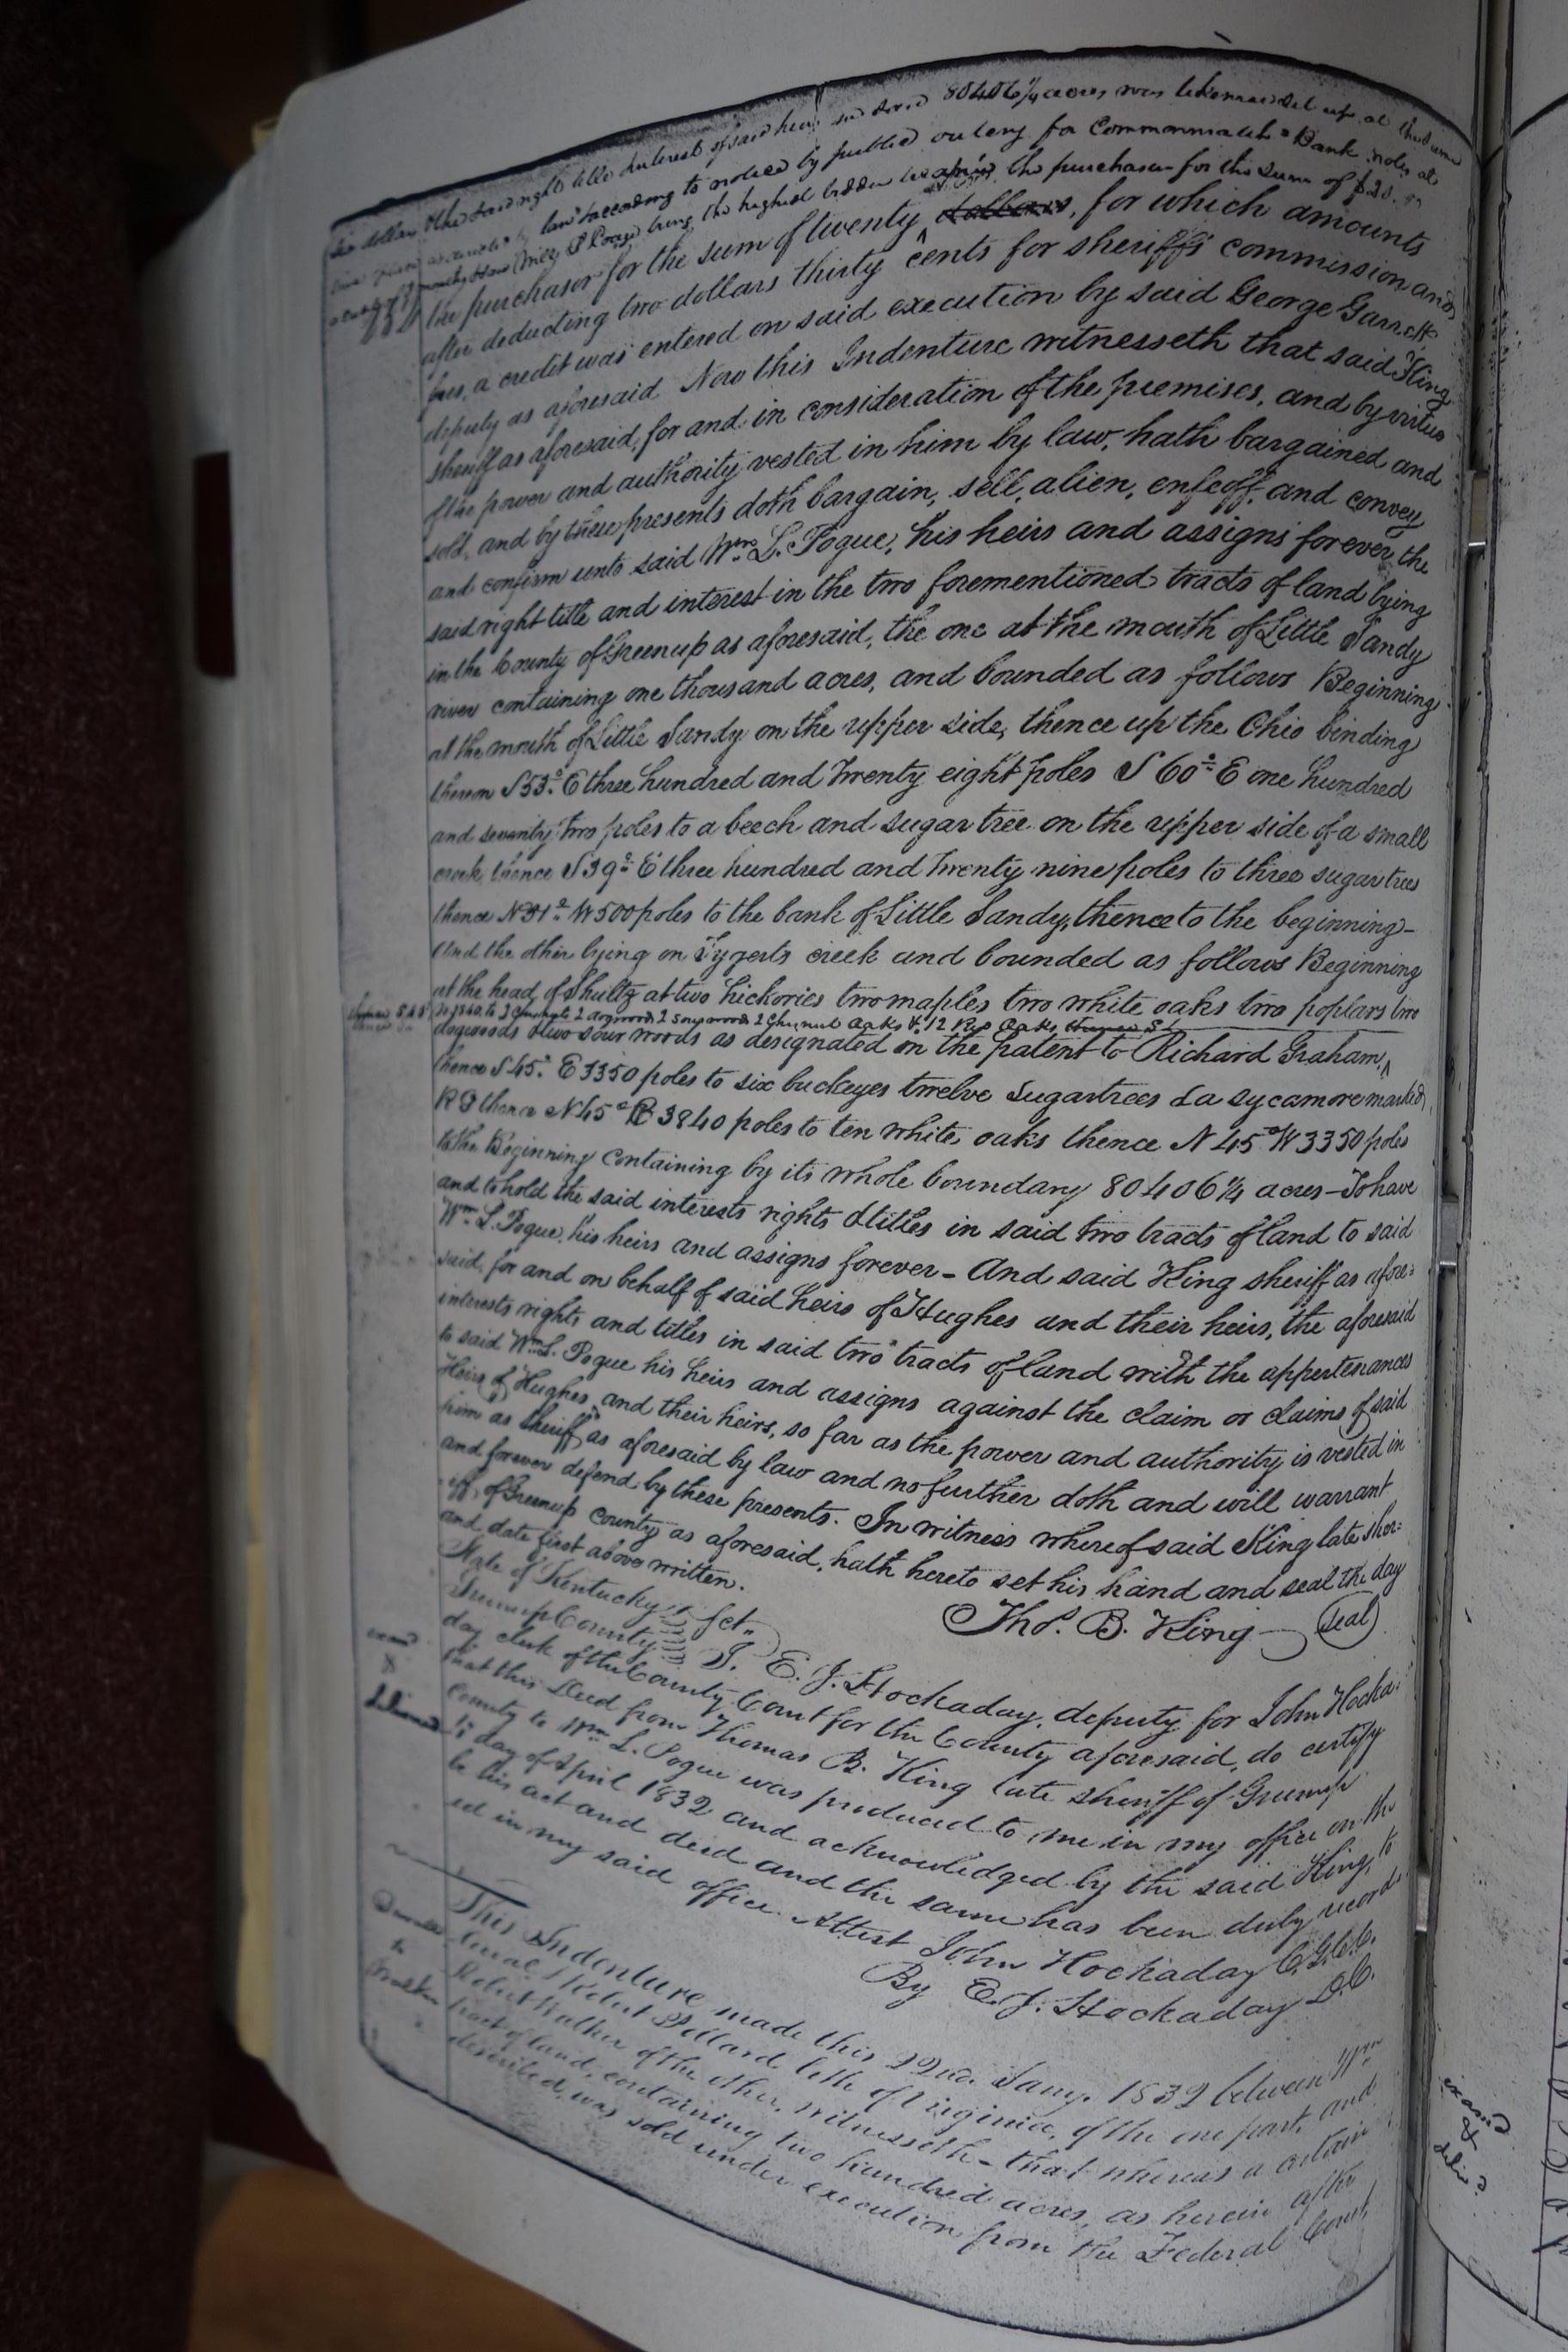 six dollars the said right title interest of said heirs in said 80406 1/4 acres was likewise set up at the same
time place according to law according to notice by public outcry for Commonwealths Bank notes at
months, when Wm L Pogue being the highest bidder became the purchaser for the sum of $20.
the purchaser for the sum of twenty dollars, for which amounts
after deducting two dollars thirty cents for sheriffs commission and
fees, a credit was entered on said execution by said George Garrett
deputy as aforesaid Now this Indenture witnesseth that said King
sheriff as aforesaid, for and in consideration of the premises, and by virtue
of the power and authority vested in him by law, hath bargained and
sold, and by these presents doth bargain, sell, alien, enfeoff, and convey
and confirm unto said Wm. L. Pogue, his heirs and assigns forever the
said right title and interest in the two forementioned tracts of land lying
in the County of Greenup as aforesaid, the one at the mouth of Little Sandy
river containing one thousand acres, and bounded as follows Beginning
at the mouth of Little Sandy on the upper side, thence up the Ohio binding
thereon S 53° E three hundred and Twenty eight poles S 60° E one hundred
and seventy two poles to a beech and sugar tree on the upper side of a small
creek, thence S 39° E three hundred and Twenty nine poles to three sugar trees
thence N 81° W 500 poles to the bank of Little Sandy, thence to the beginning-
And the other lying on Tygerts creek and bounded as follows Beginning
at the head of Shultz at two hickories two maples two white oaks two poplars two
2 dogwoods 2 sourwoods 2 Chesnut Oaks & 12 Red Oaks thence S
dogwoods & two sour woods as designated on the patent to Richard Graham,
thence S 45° E 3350 poles to six buckeyes twelve Sugartrees & a sycamore marked
R G thence N 45° E 3840 poles to ten white oaks thence N 45° W 3350 poles
to the Beginning containing by its whole boundary 80406 1/4 acres - To have
and to hold the said interests rights & titles in said two tracts of land to said
Wm. L. Pogue, his heirs and assigns forever - And said King sheriff as afore=
said, for and on behalf of said heirs of Hughes and their heirs, the aforesaid
interests rights and titles in said two tracts of land with the appertenances
to said Wm. L. Pogue his heirs and assigns against the claim or claims of said
Heirs of Hughes, and their heirs, so far as the power and authority is vested in
him as sheriff as aforesaid by law and no further doth and will warrant
and forever defend by these presents. In witness whereof said King late sher=
iff, of Greenup county as aforesaid, hath hereto set his hand and seal the day
and date first above written.
Tho. B. King seal
State of Kentucky
Greenup County Sct.
I. E. J. Hockaday, deputy for John Hocka=
day clerk of the County Court for the County aforesaid, do certify
that this Deed from Thomas B. King late sheriff of Greenup
County to Wm. L. Pogue was produced to me in my office on the
day of April 1832 and acknowledged by the said King, to
be his act and deed and the same has been duly record=
ed in my said office. Attest John Hockaday C.G.C.C.
By E. J. Hockaday D.C.
exam'd
&
delivered
to
Walker
This Indenture made this 22nd. Jany. 1832 between Wm
Robert Pollard both of Virginia, of the one part, and
Robert Walker of the other, witnesseth - that whereas a certain
tract of land, containing two hundred acres, as herein after
described, was sold under execution, from the Federal Court
exam'd
&
deliv'd